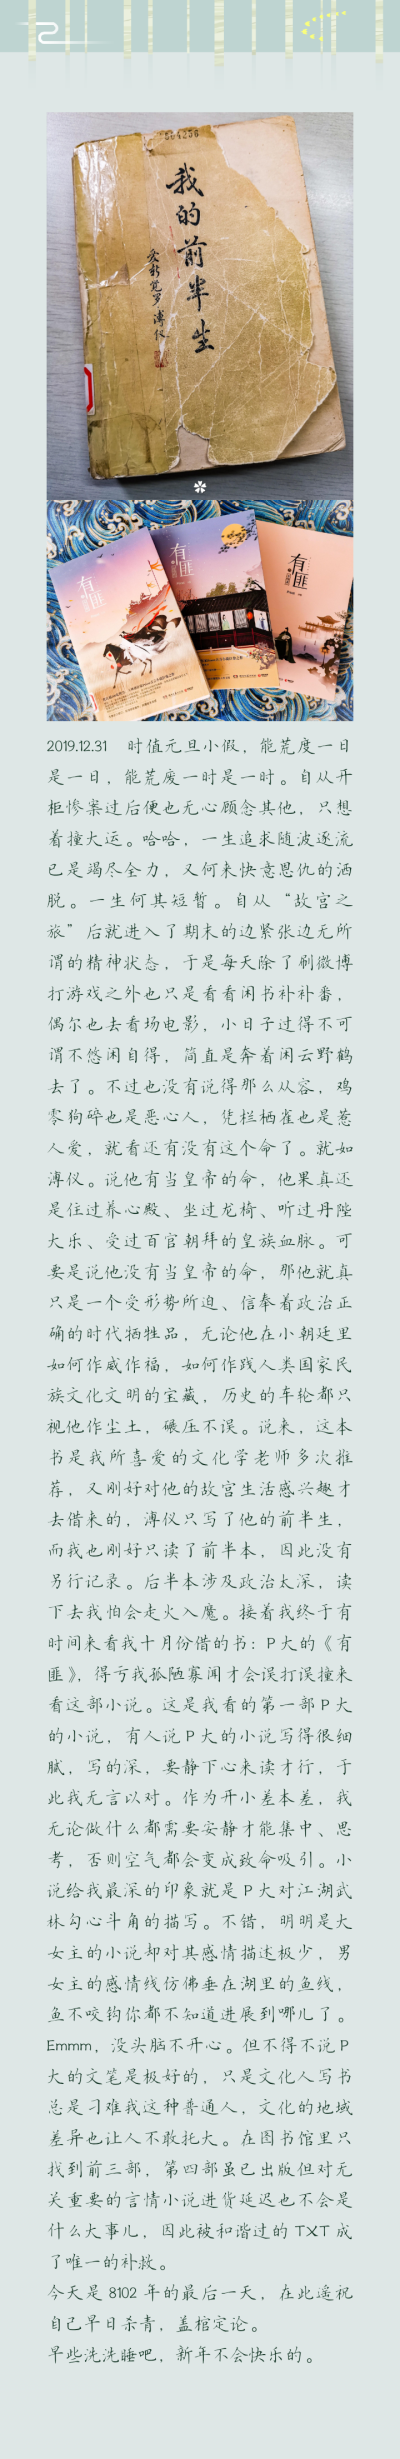 504256
我的前半生
爱新觉罗 溥仪
有匪
有匪
有匪
2019.12.31 时值元旦小假，能荒度一日
是一日，能荒废一时是一时。自从开
柜惨案过后便也无心顾念其他，只想
着撞大运。哈哈，一生追求随波逐流
已是竭尽全力，又何来快意恩仇的洒
脱。一生何其短暂。自从“故宫之
旅”后就进入了期末的边紧张边无所
谓的精神状态，于是每天除了刷微博
打游戏之外也只是看看闲书补补番，
偶尔也去看场电影，小日子过得不可
谓不悠闲自得，简直是奔着闲云野鹤
去了。不过也没有说得那么从容，鸡
零狗碎也是恶心人，凭栏栖雀也是惹
人爱，就看还有没有这个命了。就如
溥仪。说他有当皇帝的命，他果真还
是住过养心殿、坐过龙椅、听过丹陛
大乐、受过百官朝拜的皇族血脉。可
要是说他没有当皇帝的命，那他就真
只是一个受形势所迫、信奉着政治正
确的时代牺牲品，无论他在小朝廷里
如何作威作福，如何作践人类国家民
族文化文明的宝藏，历史的车轮都只
视他作尘土，碾压不误。说来，这本
书是我所喜爱的文化学老师多次推
荐，又刚好对他的故宫生活感兴趣才
去借来的，溥仪只写了他的前半生，
而我也刚好只读了前半本，因此没有
另行记录。后半本涉及政治太深，读
下去我怕会走火入魔。接着我终于有
时间来看我十月份借的书：P大的《有
匪》，得亏我孤陋寡闻才会误打误撞来
看这部小说。这是我看的第一部P大
的小说，有人说P大的小说写得很细
腻，写的深，要静下心来读才行，于
此我无言以对。作为开小差本差，我
无论做什么都需要安静才能集中、思
考，否则空气都会变成致命吸引。小
说给我最深的印象就是P大对江湖武
林勾心斗角的描写。不错，明明是大
女主的小说却对其感情描述极少，男
女主的感情线仿佛垂在湖里的鱼线，
鱼不咬钩你都不知道进展到哪儿了。
Emmm，没头脑不开心。但不得不说P
大的文笔是极好的，只是文化人写书
总是刁难我这种普通人，文化的地域
差异也让人不敢托大。在图书馆里只
找到前三部，第四部虽已出版但对无
关重要的言情小说进货延迟也不会是
什么大事儿，因此被和谐过的TXT成
了唯一的补救。
今天是8102年的最后一天，在此遥祝
自己早日杀青，盖棺定论。
早些洗洗睡吧，新年不会快乐的。